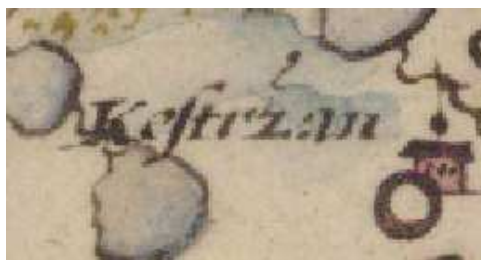 Keſtrżan